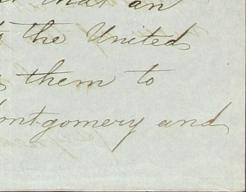 that an
the United
them to
ontgomery and